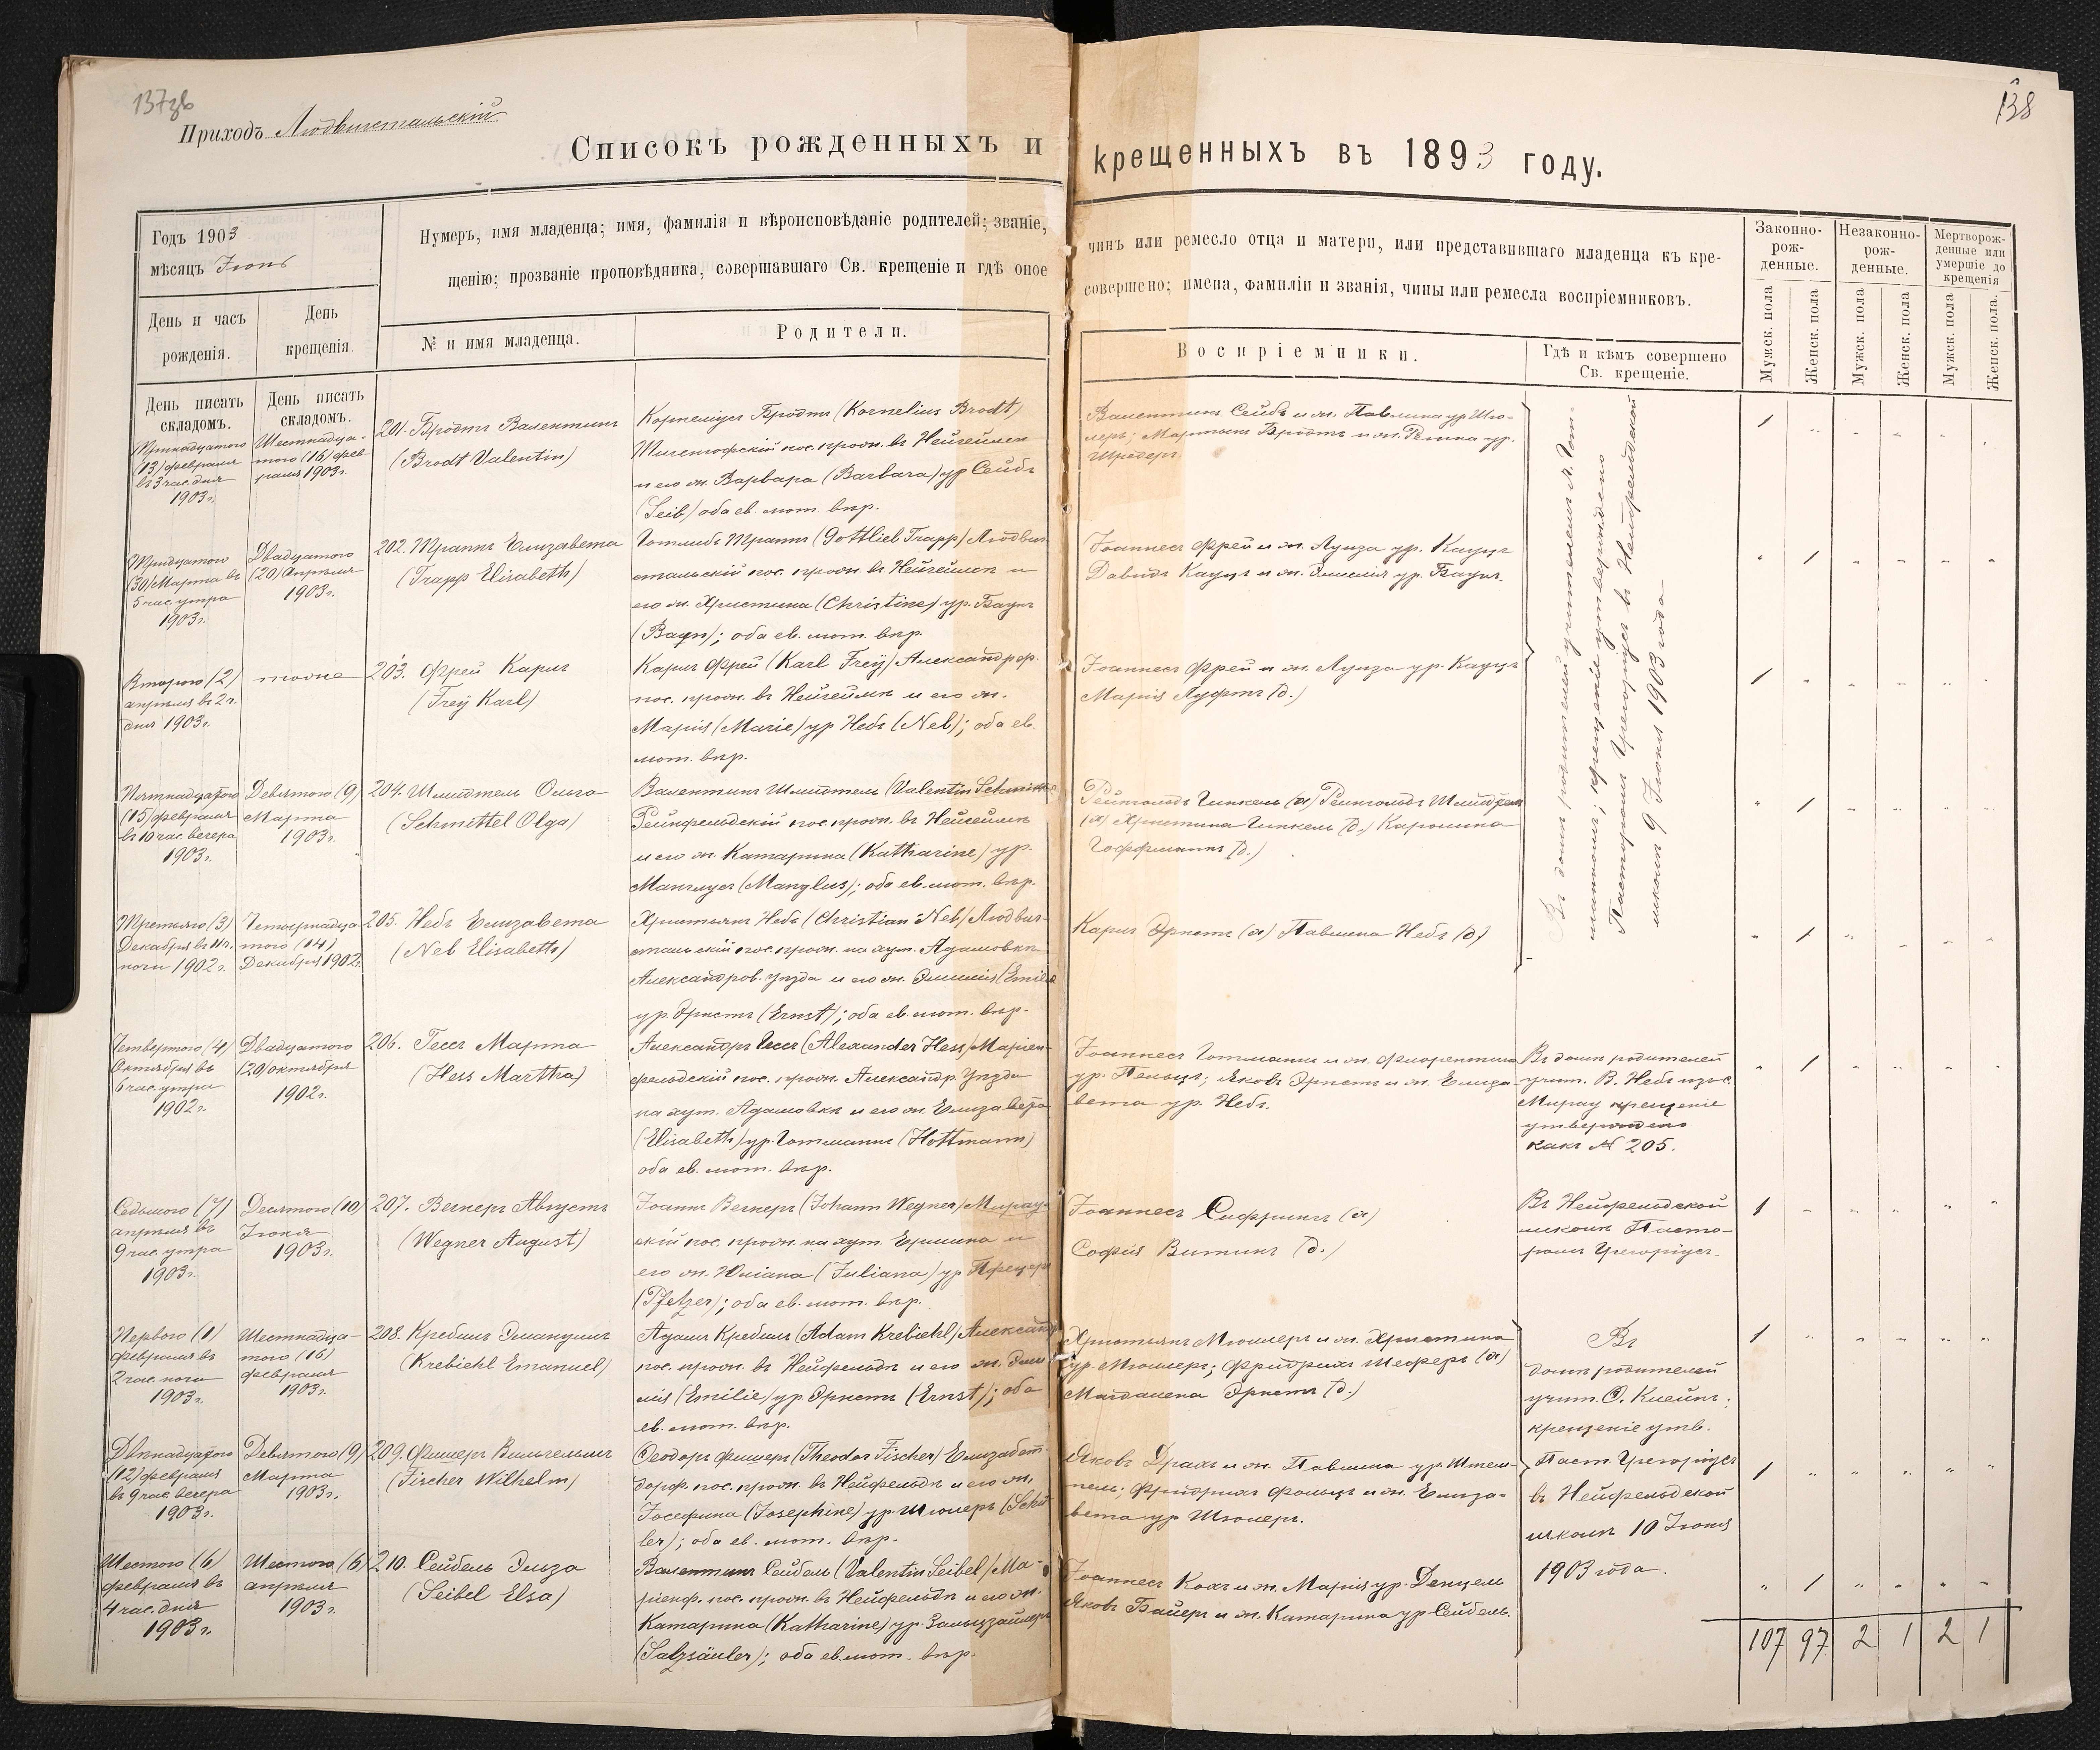 137зв
138
Приходъ Людвигстальскій
Списокъ рожденныхъ и крещенныхъ въ 1893 году.
Годъ 1903
мѣсяцъ Іюнь
Нумеръ, имя младенца; имя, фамилія и вѣроисповѣданіе родителей; званіе, чинъ или ремесло отца и матери, или представившаго младенца къ кре-
щенію; прозваніе проповѣдника, совершавшаго Св. крещеніе и гдѣ оное совершено; имена, фамиліи и званія, чины или ремесла воспріемниковъ.
День и часъ
рожденія.
День
крещенія.
№ и имя младенца.
Родители.
Воспріемники.
Гдѣ и кѣмъ совершено
Св. крещеніе.
Законно-
рож-
денные.
Незаконно-
рож-
денные.
Мертворож-
денные или
умершіе до
крещенія
Мужск. пола
Женск. пола
Мужск. пола
Женск. пола
Мужск. пола
Женск. пола.
День писать
складомъ.
День писать
складомъ.
Тринадцатого
(13) февраля
въ 3 час. дня
1903 г.
Шестнадца-
того (16) фев-
раля 1903 г.
201. Бродтъ Валентинъ
(Brodt Valentin)
Корнеліусъ Бродтъ (Kornelius Brodt)
пос. прож. въ Нейгеймѣ
и его ж. Варвара (Barbara) ур Сейбъ
(Seib) оба ев. лют. вѣр.
Валентинъ Сейбъ и ж. Павлина ур. Мю-
леръ; Мартынъ Бродтъ и ж. ур.
Шредеръ.
1
Тридцатого
(30) Марта въ
5 час. утра
1903 г.
Двадцатого
(20) Апрѣля
1903 г.
202. Траппъ Елизавета
(Trapp Elisabeth)
Готлибъ Траппъ (Gottlieb Trapp) Людвиг-
стальскій пос. прож. въ Нейгеймѣ и
его ж. Христина (Christine) ур. Баунъ
(Baun); оба ев. лют. вѣр.
Іоаннесъ Фрей и ж. Луиза ур. Кауцъ
Давидъ Кауцъ и ж. Эмилія ур. Баунъ.
1
Второго (2)
апрѣля въ 2 ч.
дня 1903 г.
тогоже
203. Фрей Карлъ
(Freÿ Karl)
Карлъ Фрей (Karl Freÿ) Александроф.
пос. прож. въ Нейгеймѣ и его ж.
Марія (Marie) ур Небъ (Neb); оба ев.
лют. вѣр.
Іоаннесъ Фрей и ж. Луиза ур. Кауцъ
Марія Луфтъ (д.)
1
Пятнадцатого
(15) февраля
въ 10 час. вечера
1903 г.
Девятого (9)
Марта
1903 г.
204. Шмидтель Ольга
(Schmittel Olga)
Валентинъ Шмидтель (Valentin Schmittel)
Рейнфельдскій пос. прож. въ Нейгеймѣ
и его ж. Катарина (Katharine) ур.
Манглусъ (Manglus); оба ев. лют. вѣр.
Рейнгольдъ Гинкель (х) Рейнгольдъ Шмидтель
(х) Христина Гинкель (д.) Каролина
Гоффманнъ (д.)
1
Третьяго (3)
Декабря въ 11 ч.
ночи 1902 г.
Четырнадца-
того (14)
Декабря 1902 г.
205. Небъ Елизавета
(Neb Elisabeth)
Христьянъ Небъ (Christian Neb) Людвиг-
стальскій пос. прож. на хут. Адамовкѣ
Александров. Уѣзда и его ж. Эмилія (Emilie)
ур. Эрнстъ (Ernst); оба ев. лют. вѣр.
Карлъ Эрнстъ (х) Павлина Небъ (д)
1
Въ домѣ родителей учителемъ А. Гот-
манномъ; крещеніе утверждено
Пасторомъ Грегоріусъ въ Нейфрейдской
школѣ 9 Іюня 1903 года
Четвертого (4)
Октября въ
6 час. утра
1902 г.
Двадцатого
(20) октября
1902 г.
206. Гессъ Марта
(Hess Martha)
Александръ Гессъ (Alexander Hess) Маріен-
фельдскій пос. прож. Александр. Уѣзда
на хут. Адамовкѣ и его ж. Елизавета
(Elisabeth) ур. Готманнъ (Hottmann)
оба ев. лют. вѣр.
Іоаннесъ Готманнъ и ж. Флорентина
ур. Пельцъ; Яковъ Эрнстъ и ж. Елиза-
вета ур. Небъ.
Въ домѣ родителей
учит. В. Небъ изъ с.
Мирау крещеніе
утверждено
какъ № 205.
1
Седьмого (7)
апрѣля въ
9 час. утра
1903 г.
Десятого (10)
Іюня
1903 г.
207. Вегнеръ Августъ
(Wegner August)
Іоаннъ Вегнеръ (Johann Wegner) Мирау-
скій пос. прож. на хут. Ершина и
его ж. Юліана (Juliana) ур Пфецеръ
(Pfetzer); оба ев. лют. вѣр.
Іоаннесъ Сиффрингъ (х)
Софія Витингъ (д.)
Въ Нейфельдской
школѣ Пасто-
ромъ Грегоріусъ.
1
Перваго (1)
февраля въ
2 час. ночи
1903 г.
Шестнадца-
того (16)
февраля
1903 г.
208. Кребиль Эмануилъ
(Krebiehl Emanuel)
Адамъ Кребиль (Adam Krebiehl) Александ.
пос. прож. въ Нейфельдѣ и его ж. Эми-
лія (Emilie) ур Эрнстъ (Ernst); оба
ев. лют. вѣр.
Христьянъ Мюллеръ и ж. Христина
ур. Мюллеръ; Фридрихъ Шеферъ (х)
Магдалена Эрнстъ (д.)
1
Двѣнадцатого
(12) февраля
въ 9 час. вечера
1903 г.
Девятого (9)
Марта
1903 г.
209. Фишеръ Вильгельмъ
(Fischer Wilhelm)
Ѳеодоръ Фишеръ (Theodor Fischer) Елизабет-
дорф. пос. прож. въ Нейфельдѣ и его ж.
Іосефина (Josephine) ур. Шюлеръ (Schü-
ler); оба ев. лют. вѣр.
Яковъ Драхъ и ж. Павлина ур. Штем-
пель; Фридрихъ Фольцъ и ж. Елиза-
вета ур Шюлеръ.
1
Шестого (6)
февраля въ
4 час. дня
1903 г.
Шестого (6)
апрѣля
1903 г.
210. Сейбель Эльза
(Seibel Elsa)
Валентинъ Сейбель (Valentin Seibel) Ма-
ріенф. пос. прож. въ Нейфельдѣ и его ж.
Катарина (Katharine) ур. Зальцзайлеръ
(Salzsäuler); оба ев. лют. вѣр.
Іоаннесъ Кохъ и ж. Марія ур. Денцель
Яковъ Байеръ и ж. Катарина ур Сейбель.
1
Въ
домѣ родителей
учит. О. Клейнъ;
крещеніе утв.
Паст. Грегоріусъ
въ Нейфельдской
школѣ 10 Іюня
1903 года.
107 97 2 1 2 1